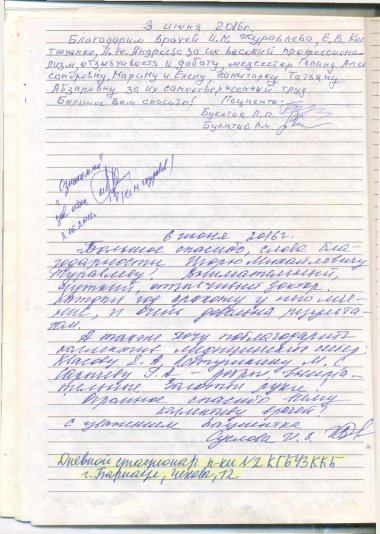 3 июня 2016г.
Благодарим врачей И.М. Журавлева, Е.В. Кос
тюченко, Л.Ю. Андреева за их высокий профессиона-
лизм, отзывчивость и доброту, медсестер Галину Алек
сандровну, Марину и Елену, санитарку Татьяну
за их самоотверженный труд
Большое Вам спасибо! Пациенты:
Букатая Л.П.
Букатый
"Ознакомлен"
зав. отд.
3.06.2016г.
6 июня 2016г.
Большое спасибо, слова бла-
годарности Игорю Михайловичу
Журавлеву! Внимательный,
чуткий, отзывчивый доктор.
год прохожу у него лече-
ние, и очень довольна результа-
том.
А также хочу поблагодарить
коллектив медицинских сестер:
Е.А., М.С.
Г.А.
золотые руки!
Огромное спасибо всему
коллективу врачей!
с уважением пациентка
Суслова И.В.
Дневной стационар п-ки №2 КГБУЗ ККБ
г. Барнаул, Чехова, 12